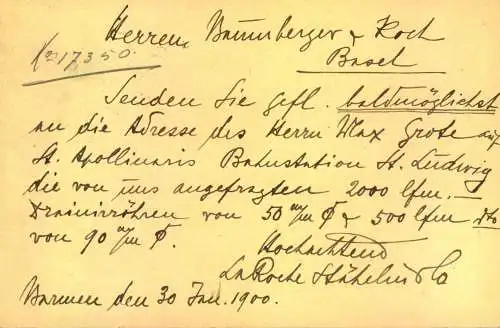 Herren Baumberger & Koch
Basel
217350.
Senden Sie gefl. baldmöglichst
an die Adresse des Herrn Max Grote auf
St. Apollinaris Bahnstation St. Ludwig
die von uns angefragten 2000 lfm. –
Drainirröhren von 50 m/m ϕ & 500 lfm dto
von 90 m/m ϕ.
Hochachtend
LaRoche Stähelin & Co
Barmen den 30 Jan. 1900.